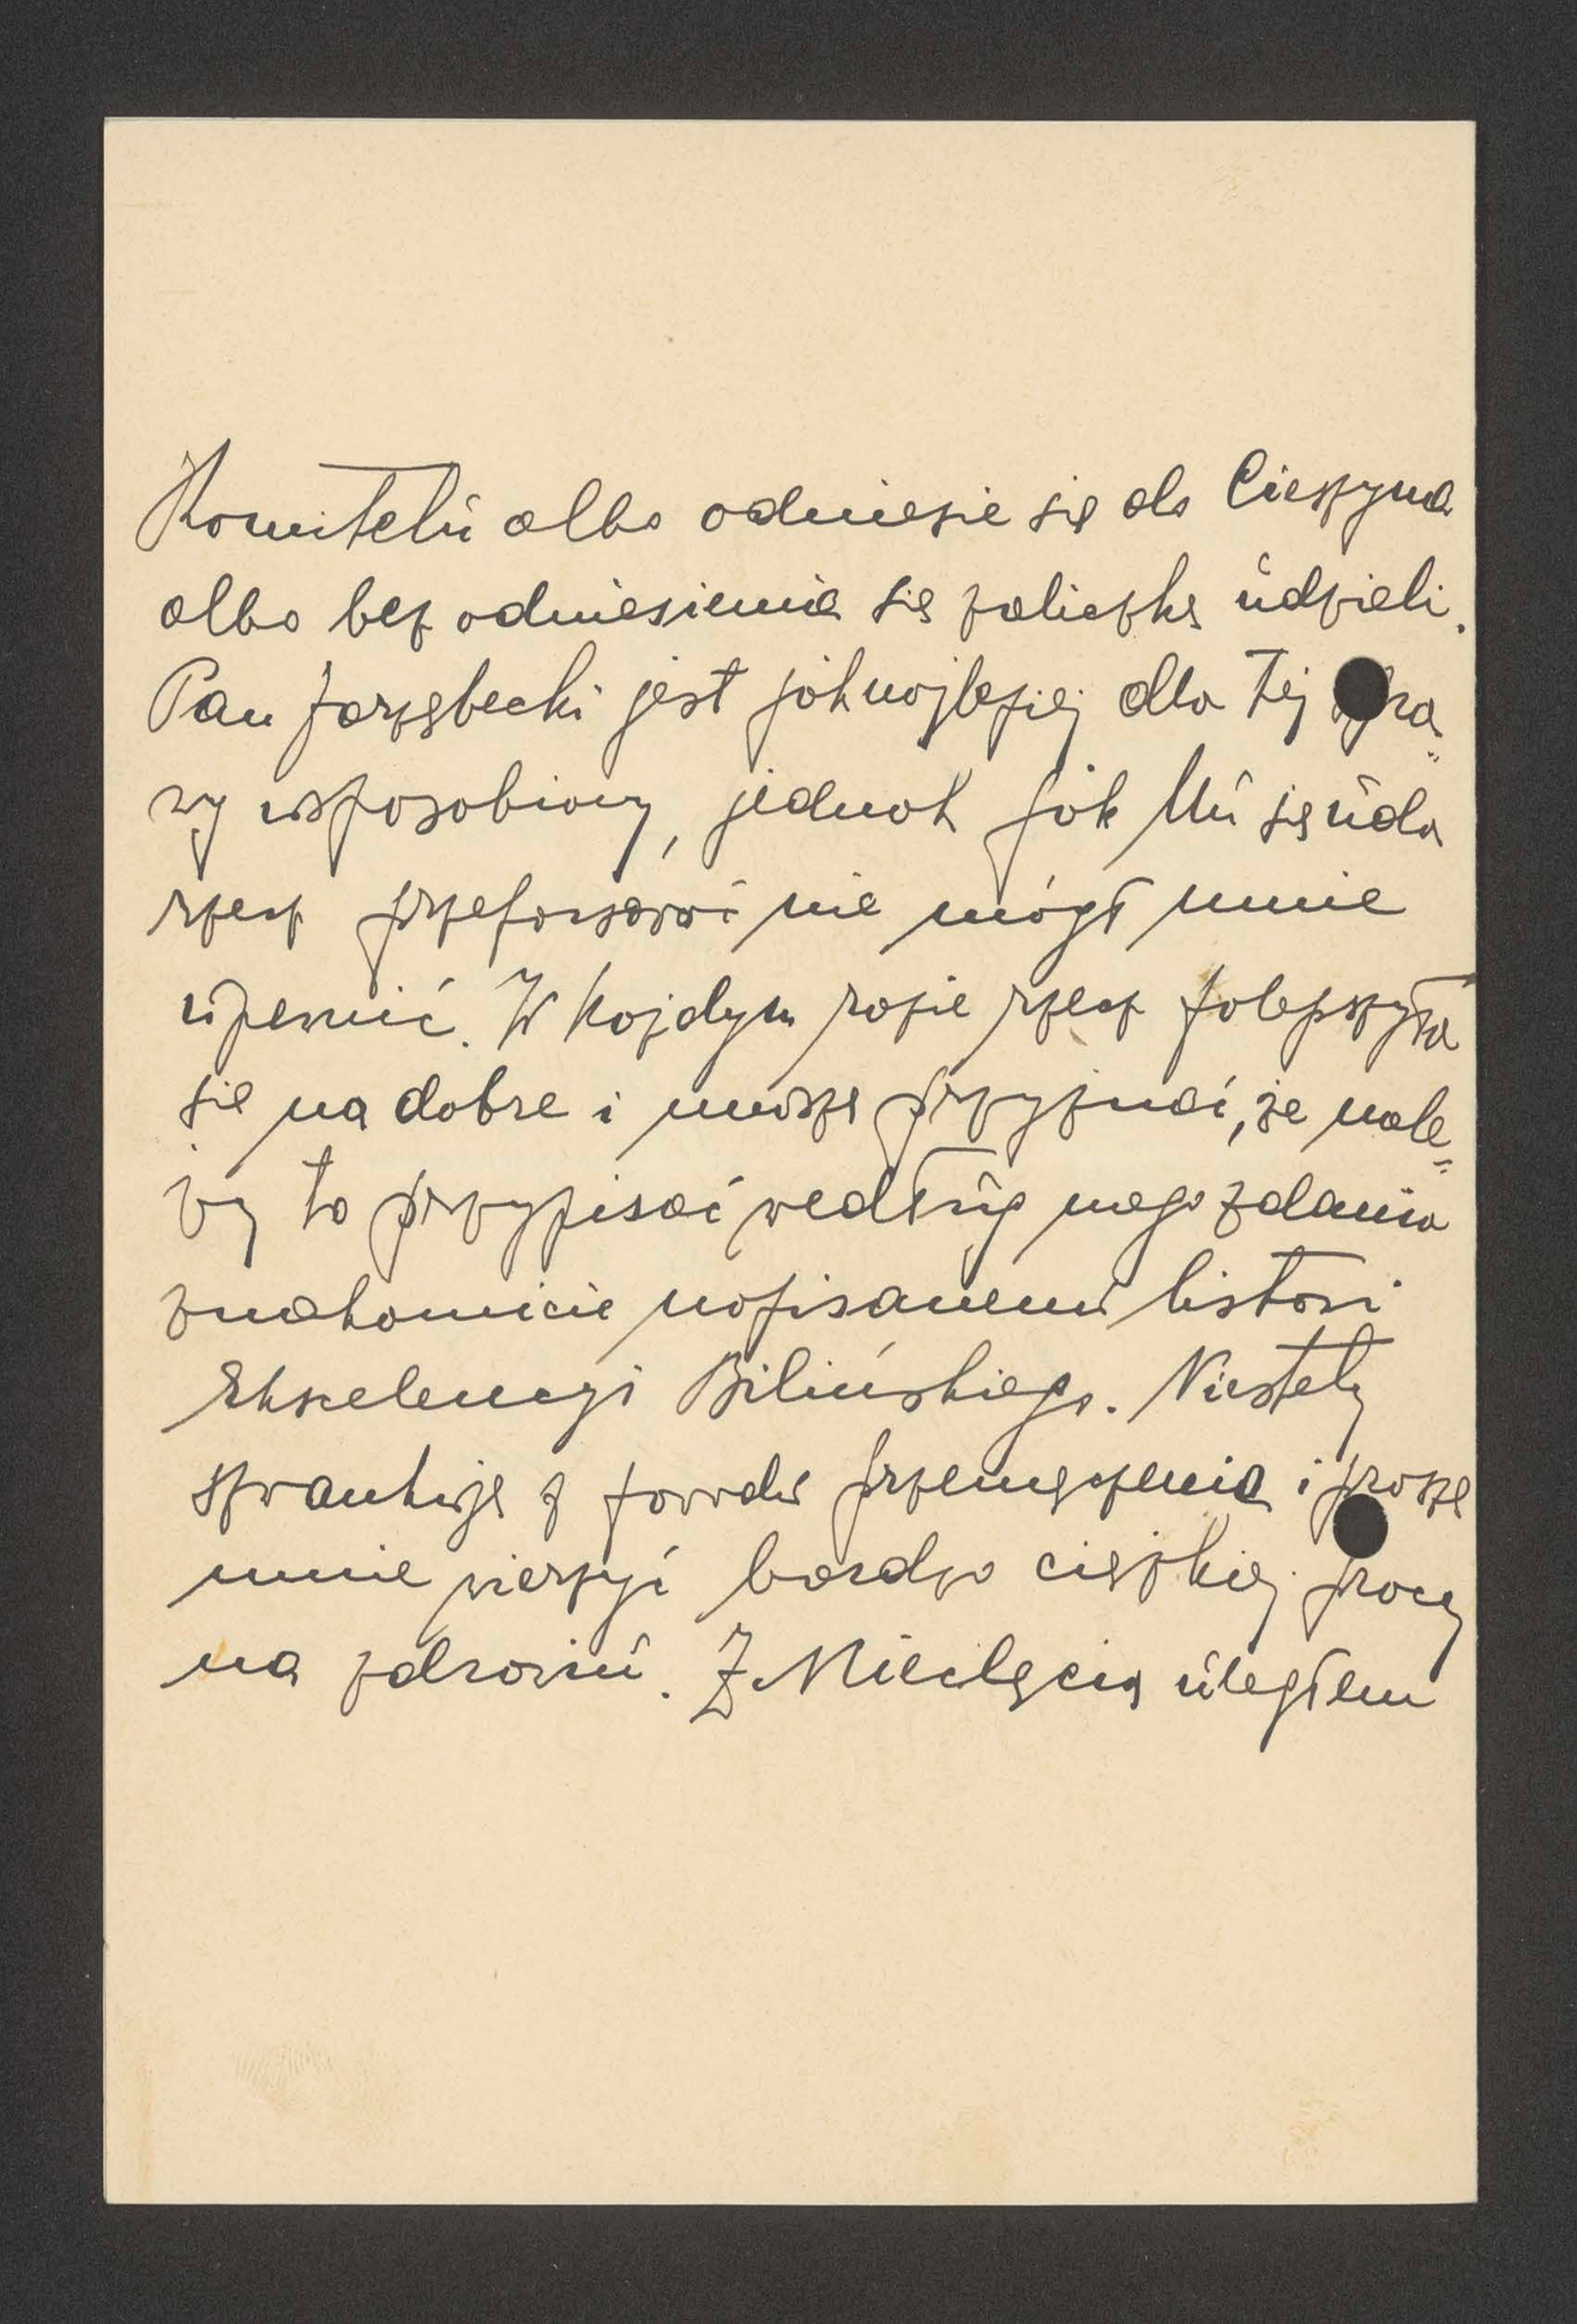 Komitetu albo odniesie się do Cieszyna
albo bez odniesienia się zaliczkę udzieli.
Pan Jarzębecki jest jaknajlepiej dla tej spra„
wy usposobiony, jednak jak Mu się uda
rzecz przeforsować nie mógł mnie
upewnić. W każdym razie rzecz polepszyła
się na dobre i muszę przyznać, że nale„
ży to przypisać według mego zdania
znakomicie napisanemu listowi
Ekscelencyi Bilińskiego. Niestety
szwankuję z powodu przemęczenia i proszę
mnie wierzyć bardzo ciężkiej pracy
na zdrowiu. Z Mieclęcią uległem